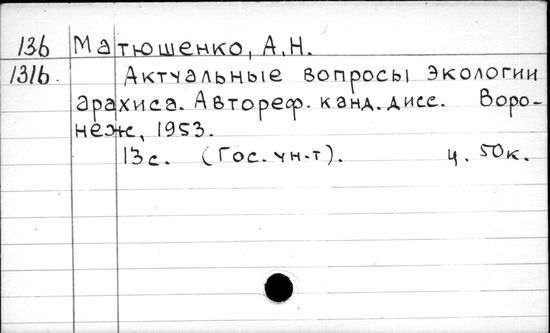 136 Матюшенко, А.Н.
1316. Актуальные вопросы экологии
арахиса. Автореф. канд. дисс. Воро-
неж, 1953.
13 с. (Гос. ун-т). ц. 50к.